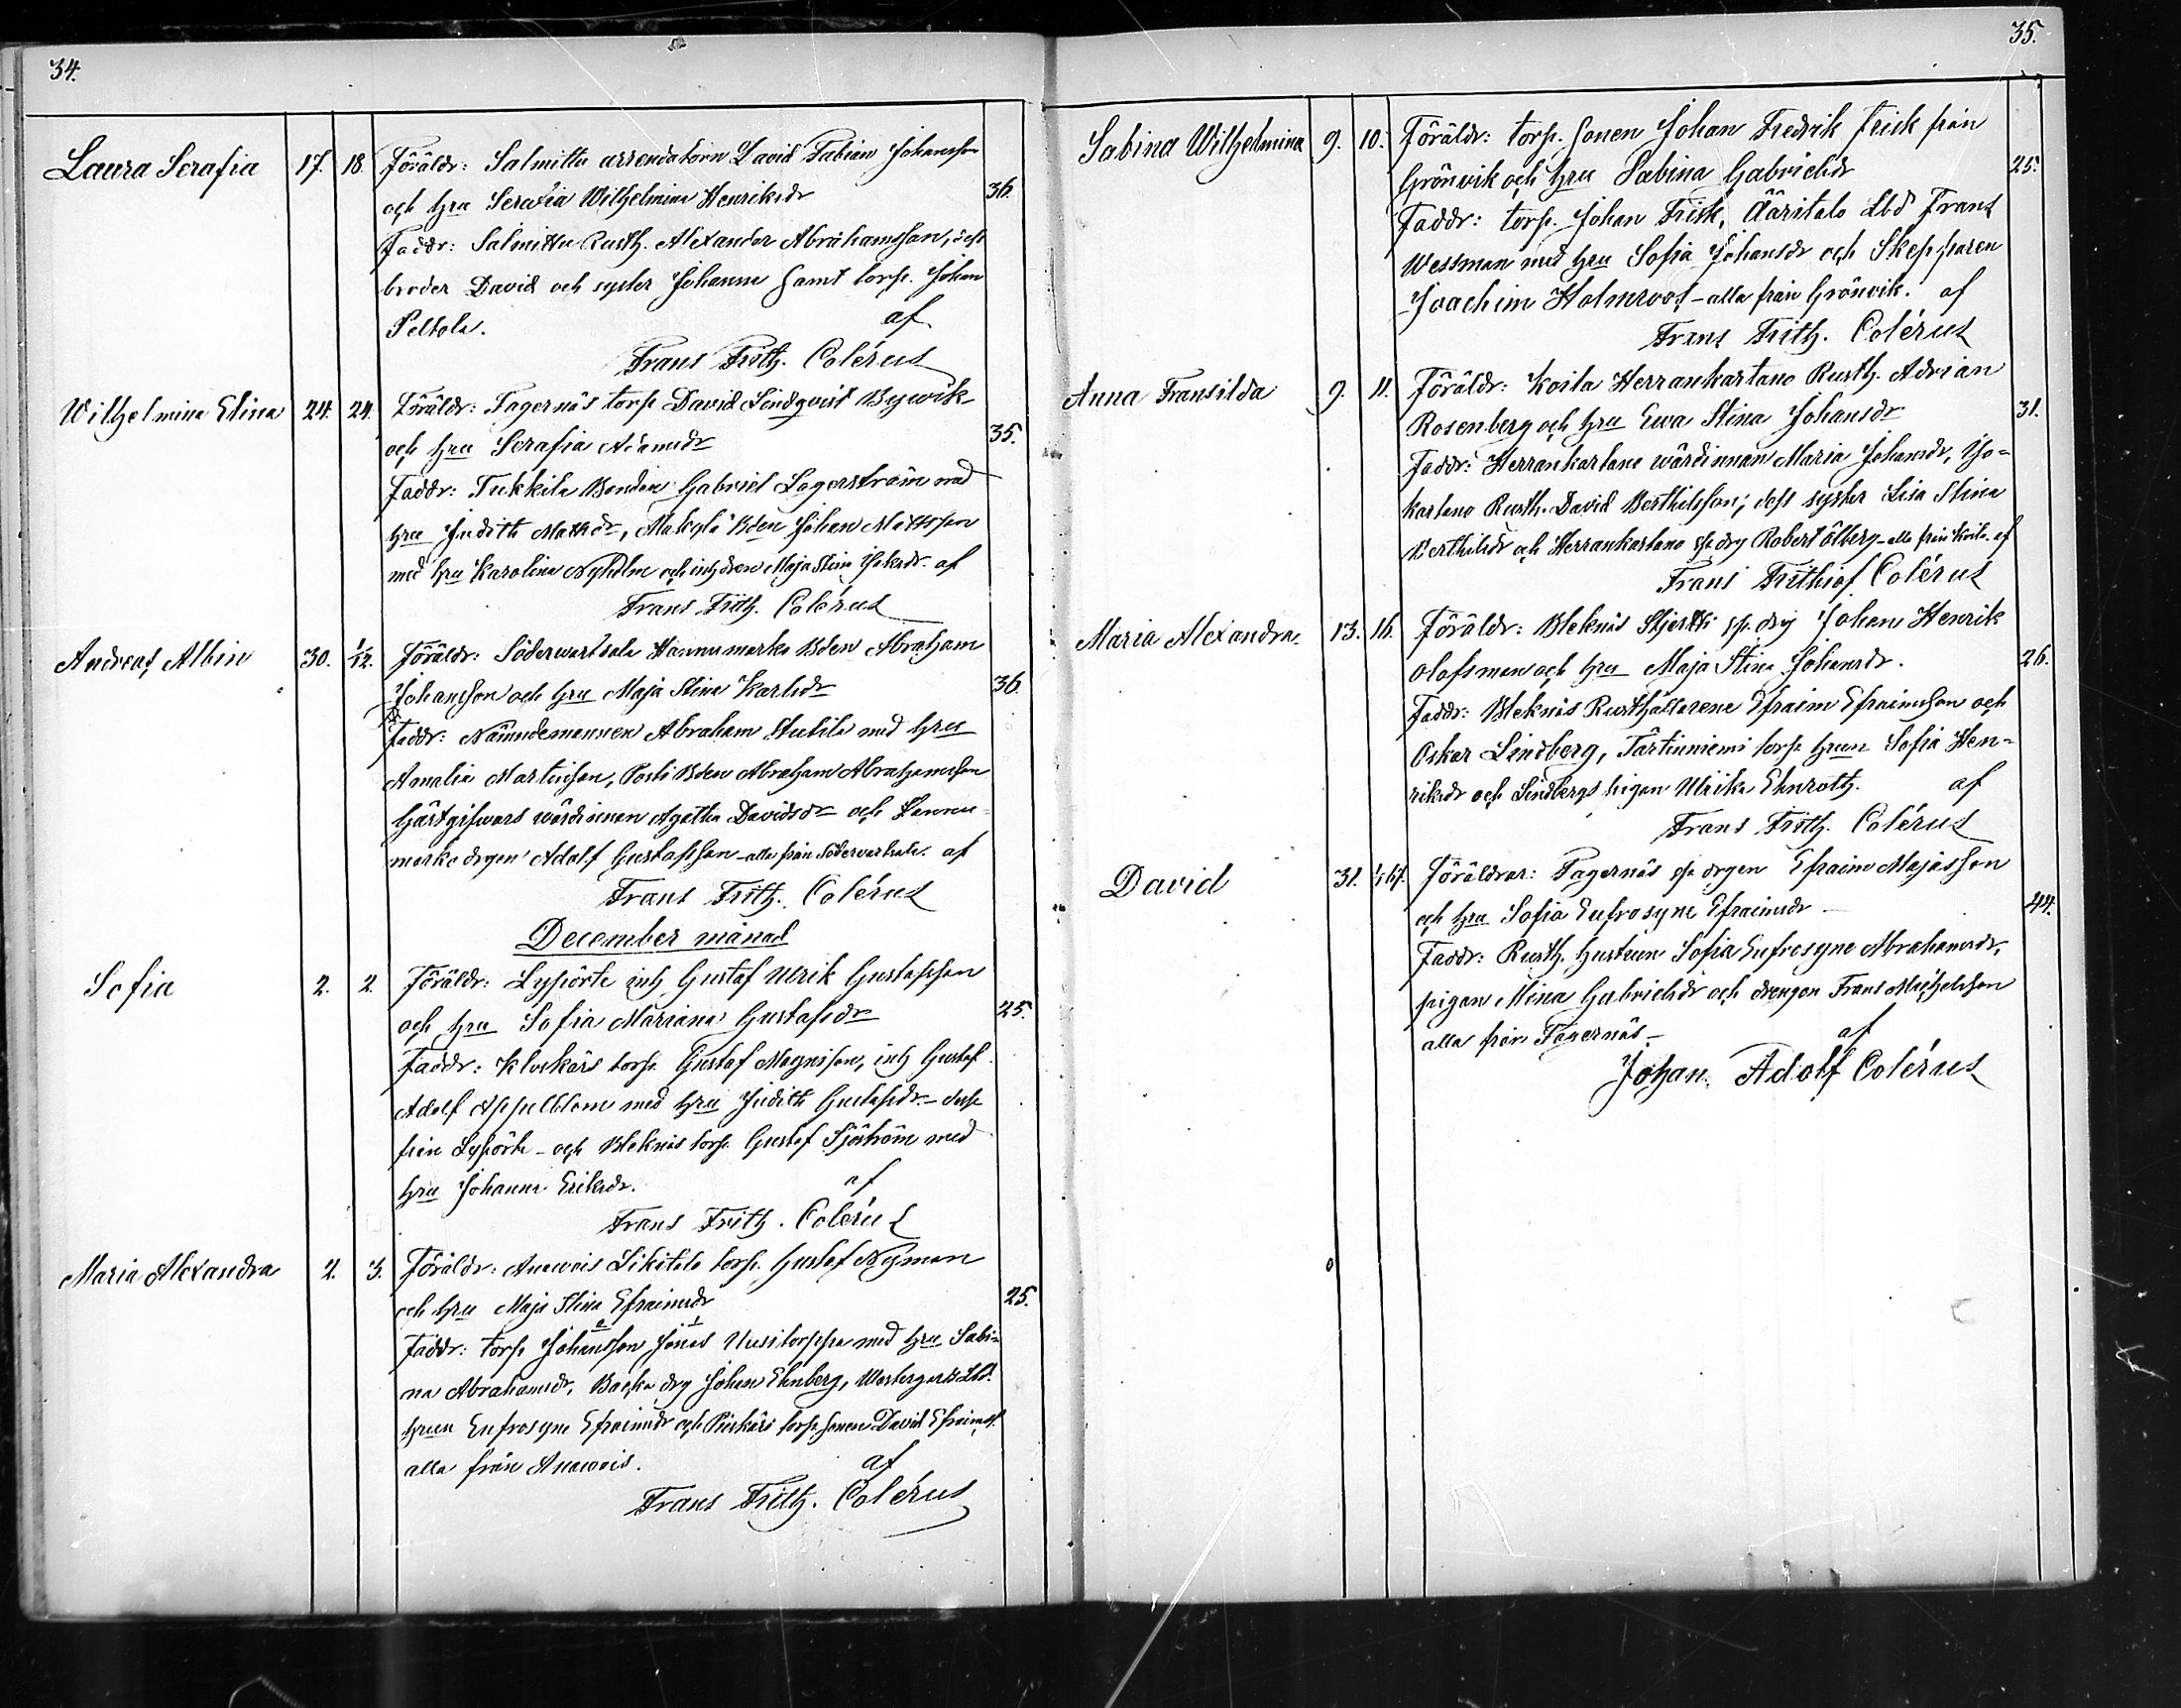 34.
Laura Serafia 17. 18. Föräldr: Salmittu arrendatorn David Fabian Johansson
och hru Serafia Wilhelmina Henriksdr 36.
Faddr: Salmittu Rusth. Alexander Abrahamsson, dess
broder David och syster Johanna samt torp. Johan
Peltola. af
Frans Frith. Colérus
Wilhelmina Elina 24. 24. Föräldr: Fagernäs torp David Lindqvist Bywik
och hru Serafia Adamsdr 35.
Faddr: Tukkila Bonden Gabriel Lagerström med
hru Judith Mattsdr, Mälkylä Bden Johan Mattsson
med hru Karolina Nyholm och inh dren Maja Stina Jeksdr. af
Frans Frith. Colérus
Andreas Albin 30. 1/12. Föräldr: Söderwartsala Hannumarko Bden Abraham
Johansson och hru Maja Stina Karlsdr 36.
Faddr: Nämndemannen Abraham Stukila med hru
Amalia Martinson, Posti Bden Abraham Abrahamsson
Gästgifwars wärdinnan Agatha Davidsdr och Hannu-
marko drgen Adolf Gustafsson - alla från Södervartsala. af
Frans Frith. Colérus
December månad
Sofia 2. 2. Föräldr: Lypörte inh Gustaf Ulrik Gustafsson
och hru Sofia Mariana Gustafsdr 25.
Faddr: Klockars torp. Gustaf Magnisson, inh Gustaf
Adolf Appelblom med hru Judith Gustafsdr -
från Lypörte - och Bleknäs torp. Gustaf Sjöström med
hru Johanna Eriksdr. af
Frans Frith. Colérus
Maria Alexandra 2. 3. Föräldr: Anewais Likitalo torp. Gustaf Nyman
och hru Maja Stina Efraimsdr 25.
Faddr: torp Johansson Jonas Uusitorppa med hru Sabi-
na Abrahamsdr, Backa drg Johan Ehnberg, Westergårds Lbd.
hrun Eufrosyne Efraimsdr och torp. sonen David Efraims.
alla från Anewais. af
Frans Frith. Colérus
35.
Sabina Wilhelmina 9. 10. Föräldr: torp. sonen Johan Fredrik Frisk från
Grönvik och hru Sabina Gabrielsdr 25.
Faddr: torp. Johan Frisk, Ääritalo Lbd Frans
Wessman med hru Sofia Johansdr och Skepparen
Joachim Holmroos - alla från Grönvik. af
Frans Frith. Colérus
Anna Fransilda 9. 11. Föräldr: Koila Herrankartano Rusth. Adrian
Rosenberg och hru Ewa Stina Johansdr 31.
Faddr: Herrankartano wärdinnan Maria Johansdr, Iso-
kartano Rusth. David Berthilsson, dess syster Lisa Stina
Berthilsdr och Herrankartano sp. drg Robert Ölberg - alla från Koila. af
Frans Frithiof Colérus
Maria Alexandra 13. 16. Föräldr: Bleknäs Stjertti sp. drg Johan Henrik
Olofsman och hru Maja Stina Johansdr. 26.
Faddr: Bleknäs Rusthållarene Efraim Efraimsson och
Oskar Lindberg, Tärtinniemi torp. hrun Sofia Hen-
riksdr och Lindbergs pigan Ulrika Ehnroth. af
Frans Frith. Colérus
David 31. 1/1 67. Föräldrar: Fagernäs sp. drgen Efraim Majasson
och hru Sofia Eufrosyne Efraimsdr 44.
Faddr: Rusth. hustrun Sofia Eufrosyne Abrahamsdr,
pigan Mina Gabrielsdr och drengen Frans Michelsson
alla från Fagernäs - af
Johan Adolf Colérus